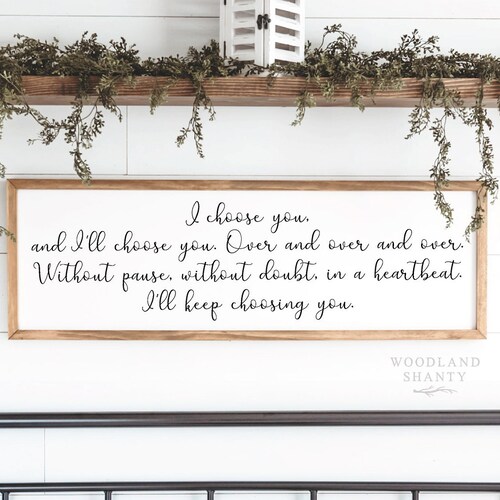 I choose you,
and I'll choose you. Over and over and over.
Without pause, without doubt, in a heartbeat.
I'll keep choosing you.
WOODLAND
SHANTY